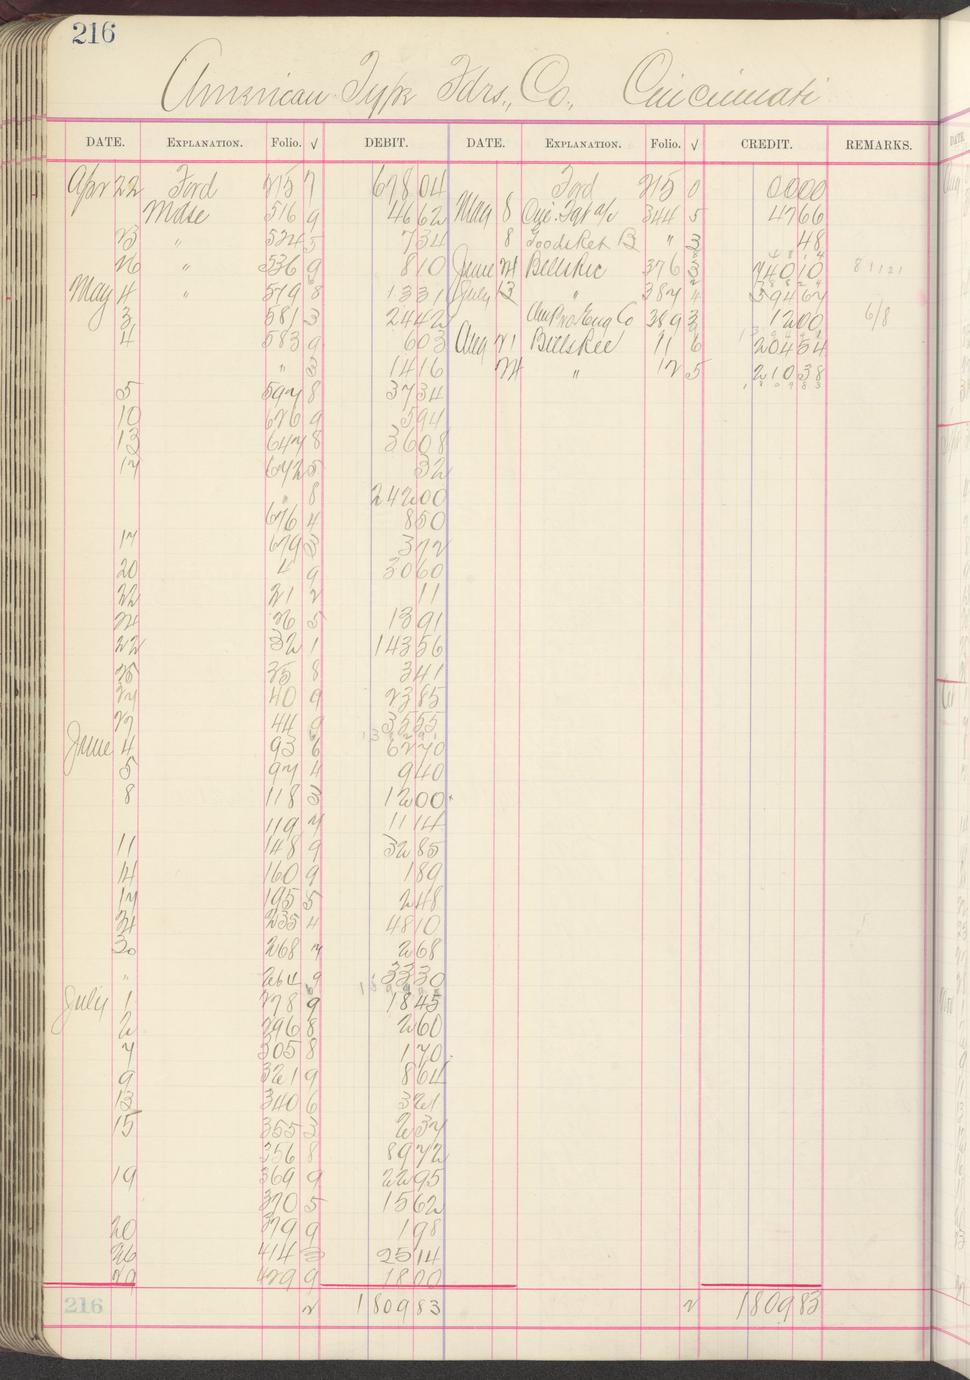 216
American Type Fdrs., Co., Cincinnati
DATE. EXPLANATION. Folio. √ DEBIT. DATE. EXPLANATION. Folio. √ CREDIT. REMARKS.
Apr 22 Ford 215 7 678 04 Ford 215 0 00 00
Mdse 516 9 46 62 May 8 344 5 47 66
23 " 524 5 7 34 8 Goods Ret B " 3 48
26 " 536 9 8 10 June 24 Bills Rec 376 3 740 10
May 4 " 579 8 13 31 July 13 " 387 4 594 67
3 581 3 24 42 389 3 12 00 6/8
4 583 9 6 03 Aug 21 Bills Rec 11 6 204 54
" 3 14 16 24 " 12 5 210 38
5 597 8 37 34
10 626 9 5 94
13 647 8 36 08
17 642 5 32
" 8 242 00
676 4 8 50
17 679 3 3 72
20 4 9 30 60
22 21 2 11
24 26 5 13 91
22 32 1 143 56
25 35 8 3 41
27 40 9 23 85
27 44 9 35 55
June 4 93 6 62 70
5 97 4 9 40
8 118 3 12 00
119 7 11 14
11 148 9 32 85
14 160 9 1 89
17 195 5 2 48
24 235 4 48 10
30 268 7 2 68
" 264 9 33 30
July 1 278 9 18 45
2 296 8 2 60
7 305 8 1 70
9 321 9 8 64
13 340 6 3 21
15 355 3 2 37
356 8 89 72
19 369 9 22 95
370 5 15 62
20 379 9 1 98
26 414 3 25 14
29 429 9 18 00
216 2 1809 83 2 1809 83